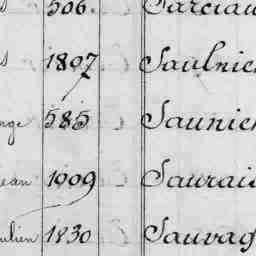 506. Sarciau
1807 Saulnie
nge 585 Saunie
ean 1009 Saurai
ulien 1830 Sauvag